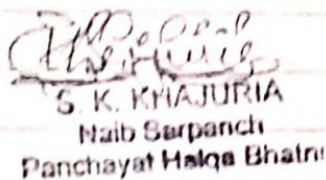 S. K. KHAJURIA
Naib Sarpanch
Panchayat Halqa Bhatni